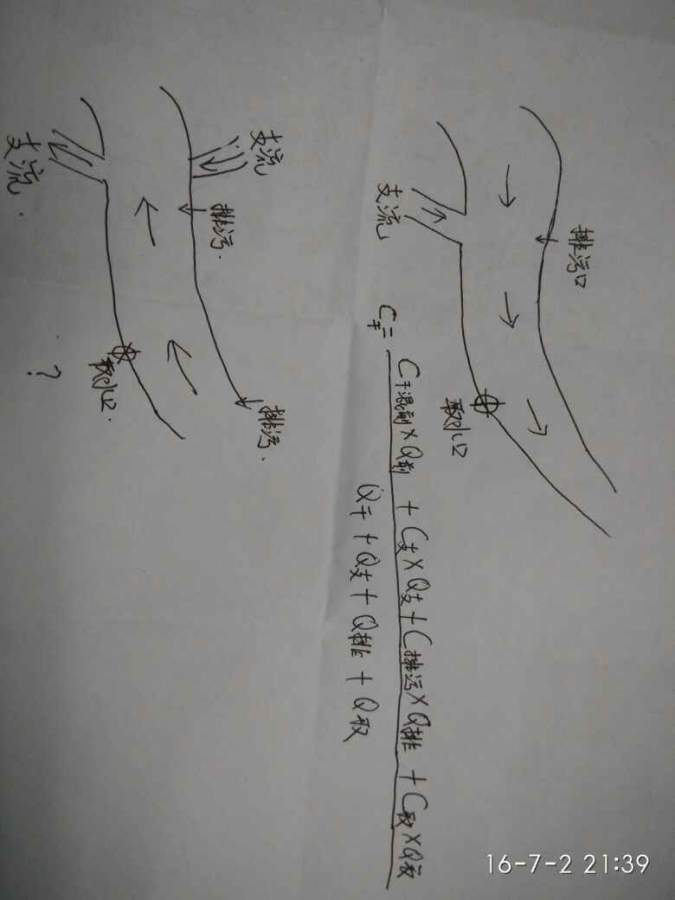 排污口
支流
取水口
C干= C干混前×Q前 + C支×Q支 + C排污×Q排 + C取×Q取
Q干 + Q支 + Q排 + Q取
支流
排污.
排污.
取水口.
支流.
?
16-7-2 21:39